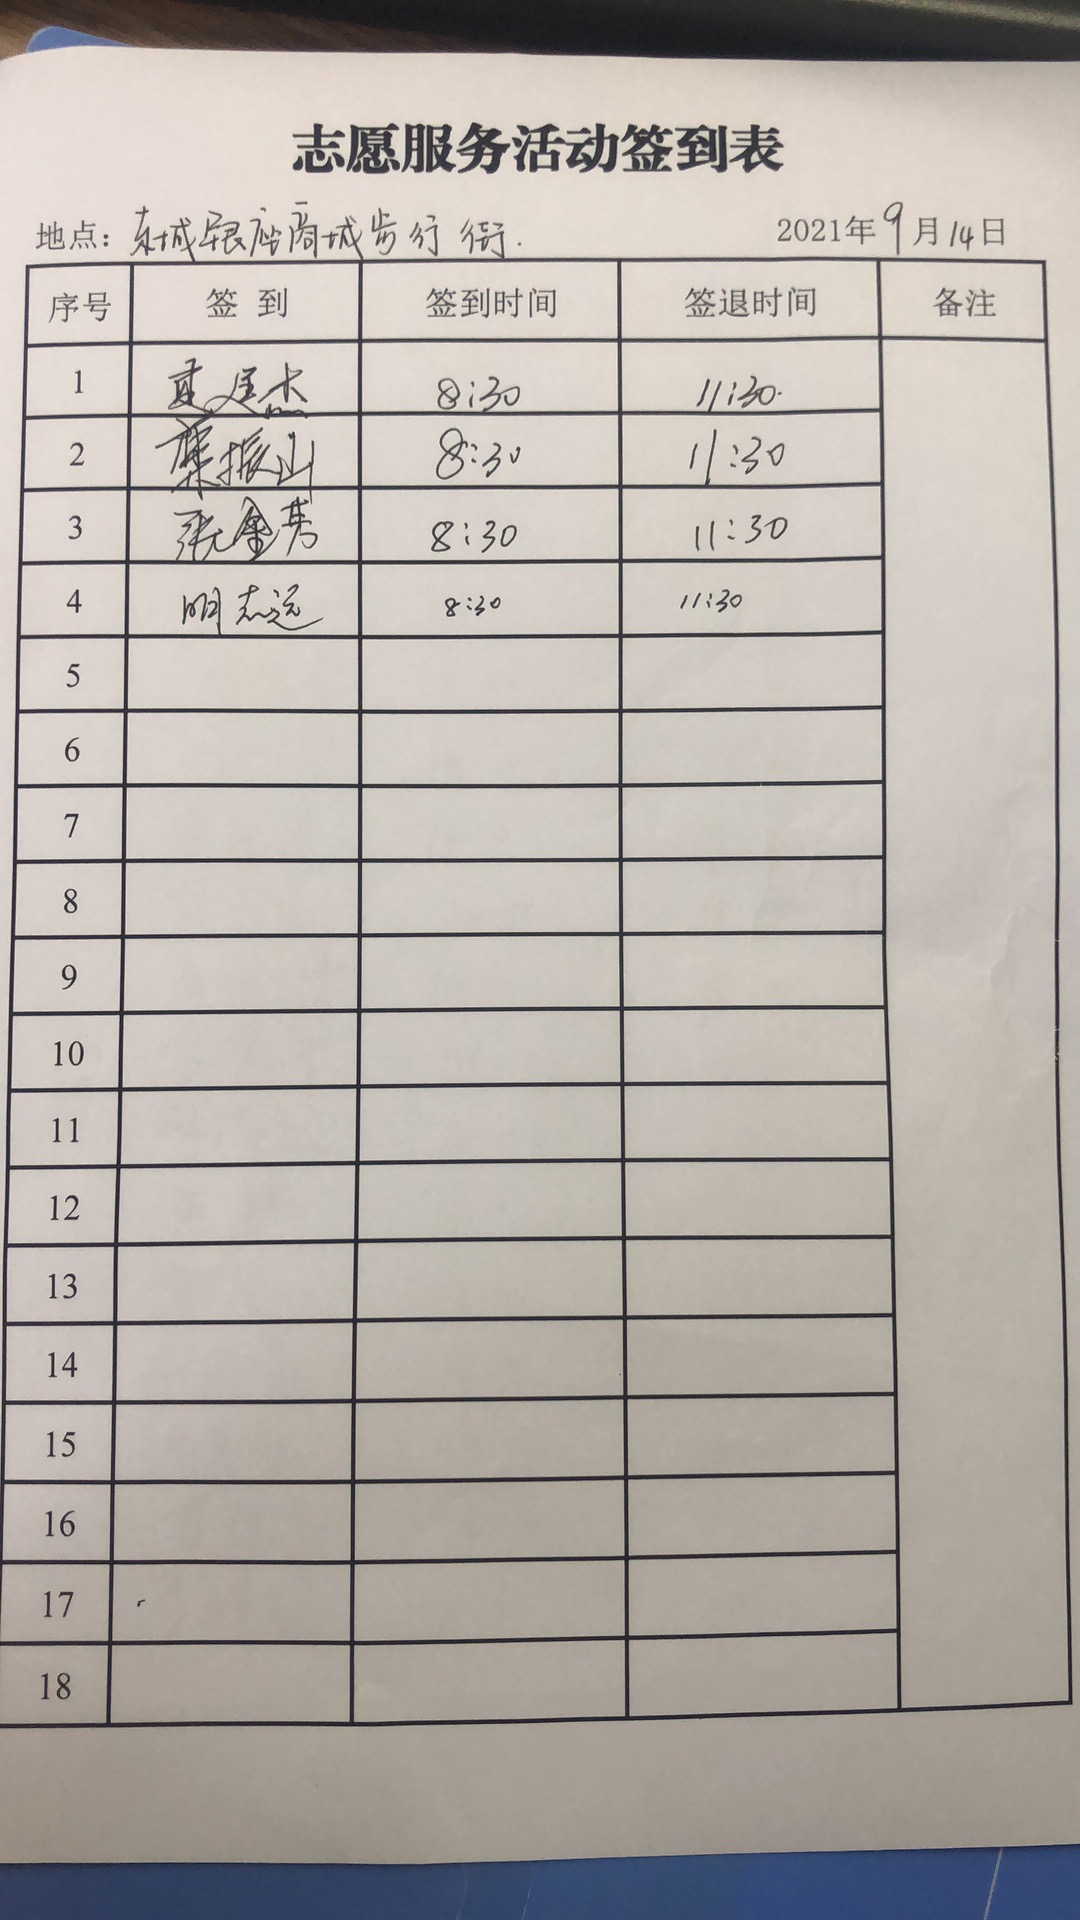 志愿服务活动签到表
地点: 东城银座商城步行街. 2021年9月14日
序号 签 到 签到时间 签退时间 备注
1 8:30 11:30.
2 振山 8:30 11:30
3 张金芳 8:30 11:30
4 明志远 8:30 11:30
5
6
7
8
9
10
11
12
13
14
15
16
17
18